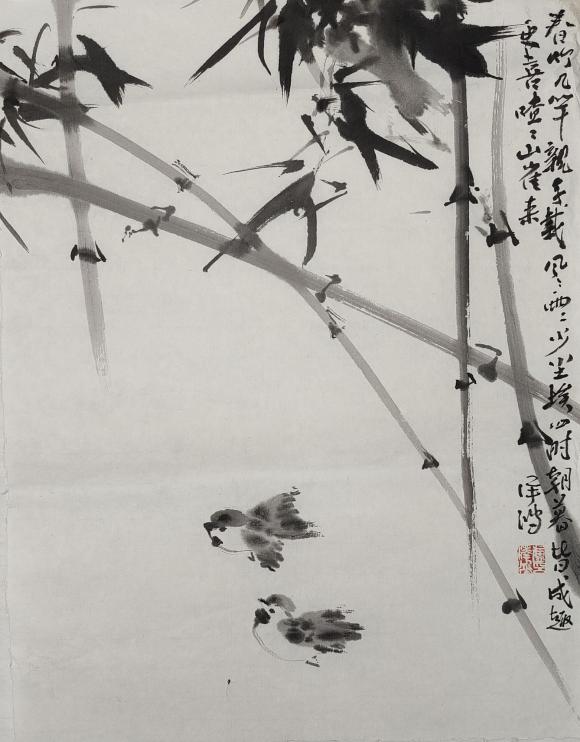 春竹几竿親手栽風風雨雨少尘埃四时朝暮皆成趣
更喜喳喳山雀来